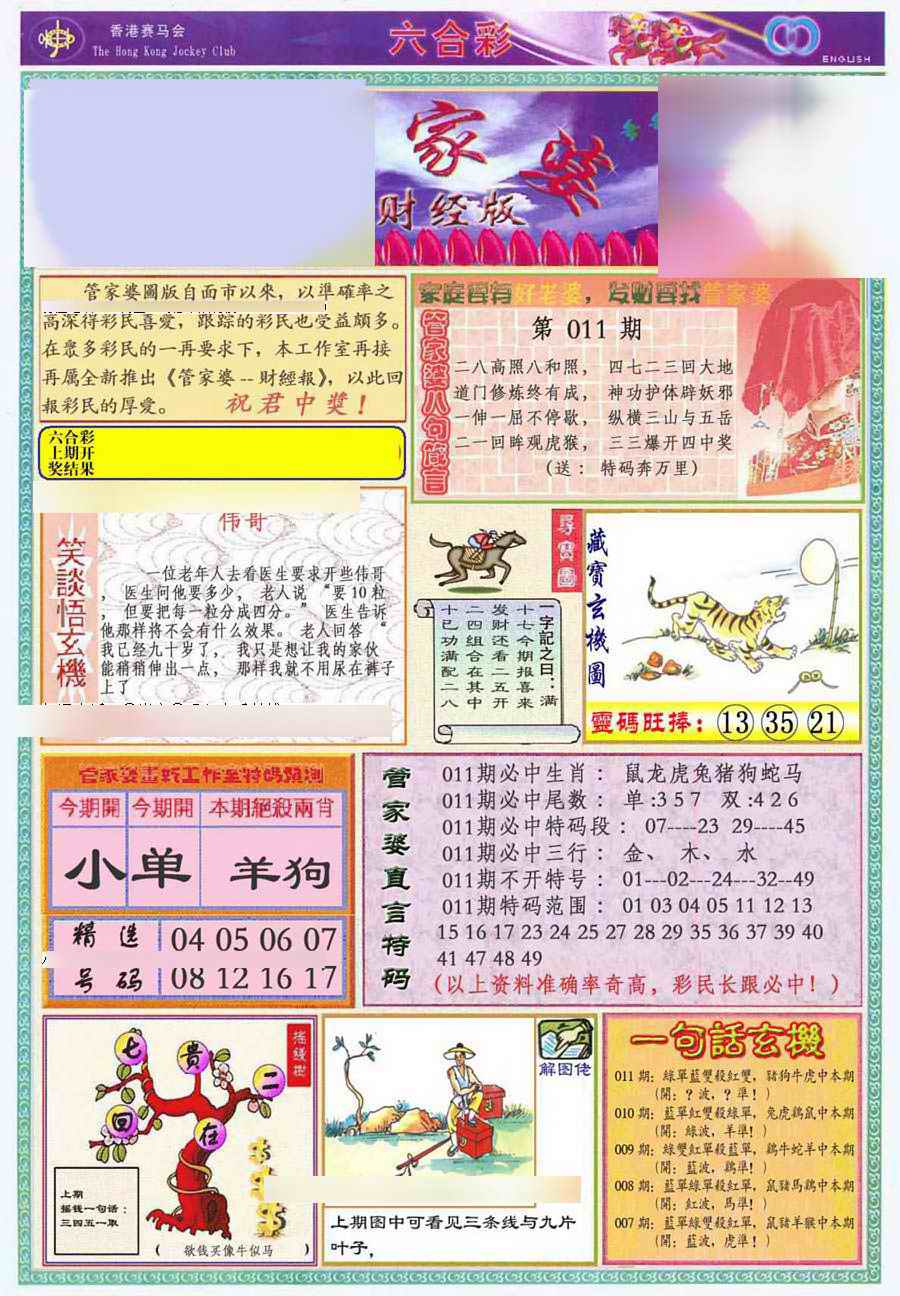 香港赛马会
The Hong Kong Jockey Club
六合彩
ENGLISH
家 婆
财经版
管家婆圖版自面市以來，以準確率之
高深得彩民喜愛，跟踪的彩民也受益頗多。
在眾多彩民的一再要求下，本工作室再接
再厲全新推出《管家婆--財經報》，以此回
報彩民的厚愛。 祝君中獎！
六合彩
上期开
奖结果
好老婆，发财要找管家婆
管家婆八句箴言
第 011 期
二八高照八和照， 四七二三回大地
道门修炼终有成， 神功护体辟妖邪
一伸一屈不停歇， 纵横三山与五岳
二一回眸观虎猴， 三三爆开四中奖
(送： 特码奔万里)
笑談悟玄機
伟哥
一位老年人去看医生要求开些伟哥
， 医生问他要多少， 老人说 “要10粒
， 但要把每一粒分成四分。” 医生告诉
他那样将不会有什么效果。 老人回答 “
我已经九十岁了， 我只是想让我的家伙
能稍稍伸出一点， 那样我就不用尿在裤子
上了
尋寶圖
一字記之曰：满
十七今期报喜来
发财还看二五开
二四组合在其中
十已功满配二八
藏寶玄機圖
靈碼旺捧：13 35 21
今期開 今期開 本期絕殺兩肖
小 单 羊狗
精选 04 05 06 07
号码 08 12 16 17
管家婆直言特码
011期必中生肖： 鼠龙虎兔猪狗蛇马
011期必中尾数： 单:3 5 7 双:4 2 6
011期必中特码段： 07----23 29----45
011期必中三行： 金、 木、 水
011期不开特号： 01---02---24---32--49
011期特码范围： 01 03 04 05 11 12 13
15 16 17 23 24 25 27 28 29 35 36 37 39 40
41 47 48 49
(以上资料准确率奇高，彩民长跟必中！)
摇錢樹
七 貴 二
回 在
上期
摇钱一句话：
三四五一取
( 欲钱买像牛似马 )
解图佬
上期图中可看见三条线与九片
叶子，
一句話玄機
011期：綠單藍雙殺紅雙，豬狗牛虎中本期
(開：？波，？準！)
010期：藍單紅雙殺綠單，兔虎鷄鼠中本期
(開：綠波，羊準！)
009期：綠雙紅單殺藍單，鷄牛蛇羊中本期
(開：藍波，鷄準！)
008期：藍單綠單殺紅單，鼠豬馬鷄中本期
(開：紅波，馬準！)
007期：藍單綠雙殺紅單，鼠豬羊猴中本期
(開：藍波，虎準！)